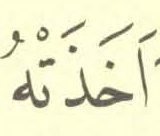 اَخَذَتْهُ